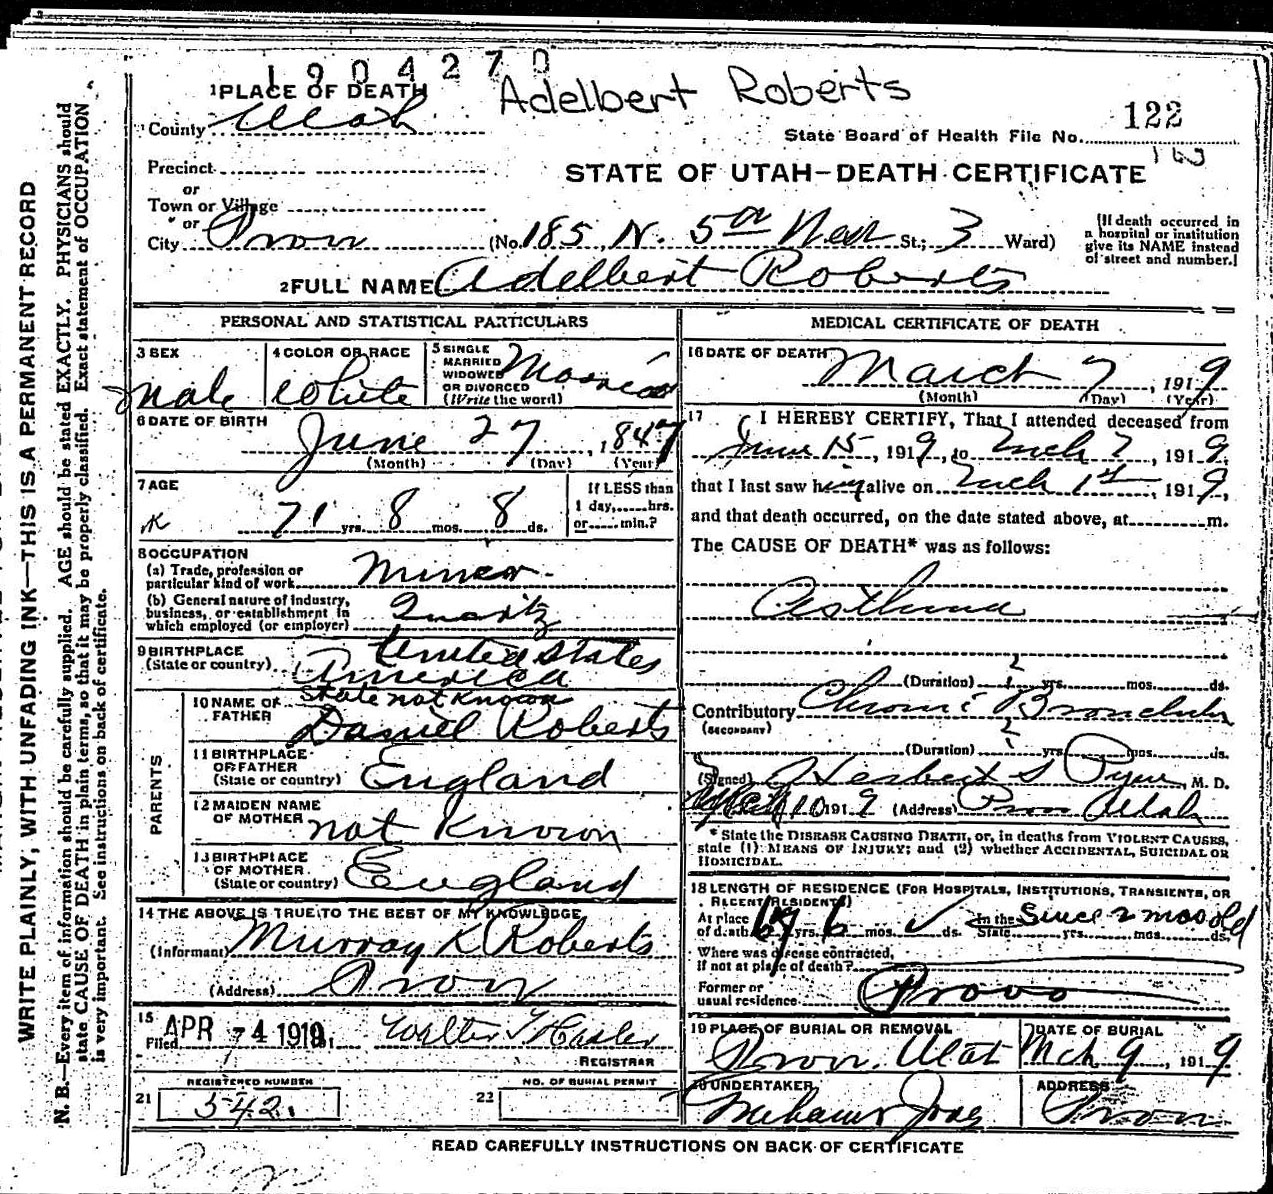 1904270
Adelbert Roberts
1 PLACE OF DEATH
County Utah
State Board of Health File No. 122
Precinct
STATE OF UTAH—DEATH CERTIFICATE
or
Town or Village
or
City Provo (No. 185 N. 5th West St.; 3 Ward)
[If death occurred in a hospital or institution give its NAME instead of street and number.]
2 FULL NAME Adelbert Roberts
PERSONAL AND STATISTICAL PARTICULARS
3 SEX
male
4 COLOR OR RACE
White
5 SINGLE MARRIED WIDOWED OR DIVORCED (Write the word)
Married
6 DATE OF BIRTH
June 27, 1847
(Month) (Day) (Year)
7 AGE
71 yrs. 8 mos. 8 ds.
If LESS than 1 day,......hrs. or......min.?
8 OCCUPATION
(a) Trade, profession or particular kind of work Miner
(b) General nature of industry, business, or establishment in which employed (or employer) Quartz
9 BIRTHPLACE
(State or country) United States America
State not Known
PARENTS
10 NAME OF FATHER Daniel Roberts
11 BIRTHPLACE OF FATHER (State or country) England
12 MAIDEN NAME OF MOTHER not Known
13 BIRTHPLACE OF MOTHER (State or country) England
14 THE ABOVE IS TRUE TO THE BEST OF MY KNOWLEDGE
(Informant) Murray K Roberts
(Address) Provo
15 Filed APR 4 1919
Walter T Hasler
REGISTRAR
21 REGISTERED NUMBER
542.
22 NO. OF BURIAL PERMIT
MEDICAL CERTIFICATE OF DEATH
16 DATE OF DEATH
March 7, 1919
(Month) (Day) (Year)
17 I HEREBY CERTIFY, That I attended deceased from
15, 1919, to Mch 7, 1919,
that I last saw him alive on Mch 1st, 1919,
and that death occurred, on the date stated above, at ........m.
The CAUSE OF DEATH* was as follows:
Asthma
(Duration) ? yrs. mos. ds.
Contributory Chronic Bronchitis
(SECONDARY)
(Duration) ? yrs. mos. ds.
(Signed) Herbert S Pyne, M. D.
10 1919 (Address) Provo Utah
* State the DISEASE CAUSING DEATH, or, in deaths from VIOLENT CAUSES, state (1) MEANS OF INJURY; and (2) whether ACCIDENTAL, SUICIDAL OR HOMICIDAL.
18 LENGTH OF RESIDENCE (FOR HOSPITALS, INSTITUTIONS, TRANSIENTS, OR RECENT RESIDENTS)
At place of death 69 yrs. 6 mos. ds. In the State yrs. mos. ds. Since 2 mos old
Where was disease contracted, if not at place of death?
Former or usual residence Provo
19 PLACE OF BURIAL OR REMOVAL
Provo. Utah
DATE OF BURIAL
Mch 9, 1919
20 UNDERTAKER
ADDRESS
Provo
READ CAREFULLY INSTRUCTIONS ON BACK OF CERTIFICATE
WRITE PLAINLY, WITH UNFADING INK—THIS IS A PERMANENT RECORD
N. B.—Every item of information should be carefully supplied. AGE should be stated EXACTLY. PHYSICIANS should
state CAUSE OF DEATH in plain terms, so that it may be properly classified. Exact statement of OCCUPATION
is very important. See instructions on back of certificate.